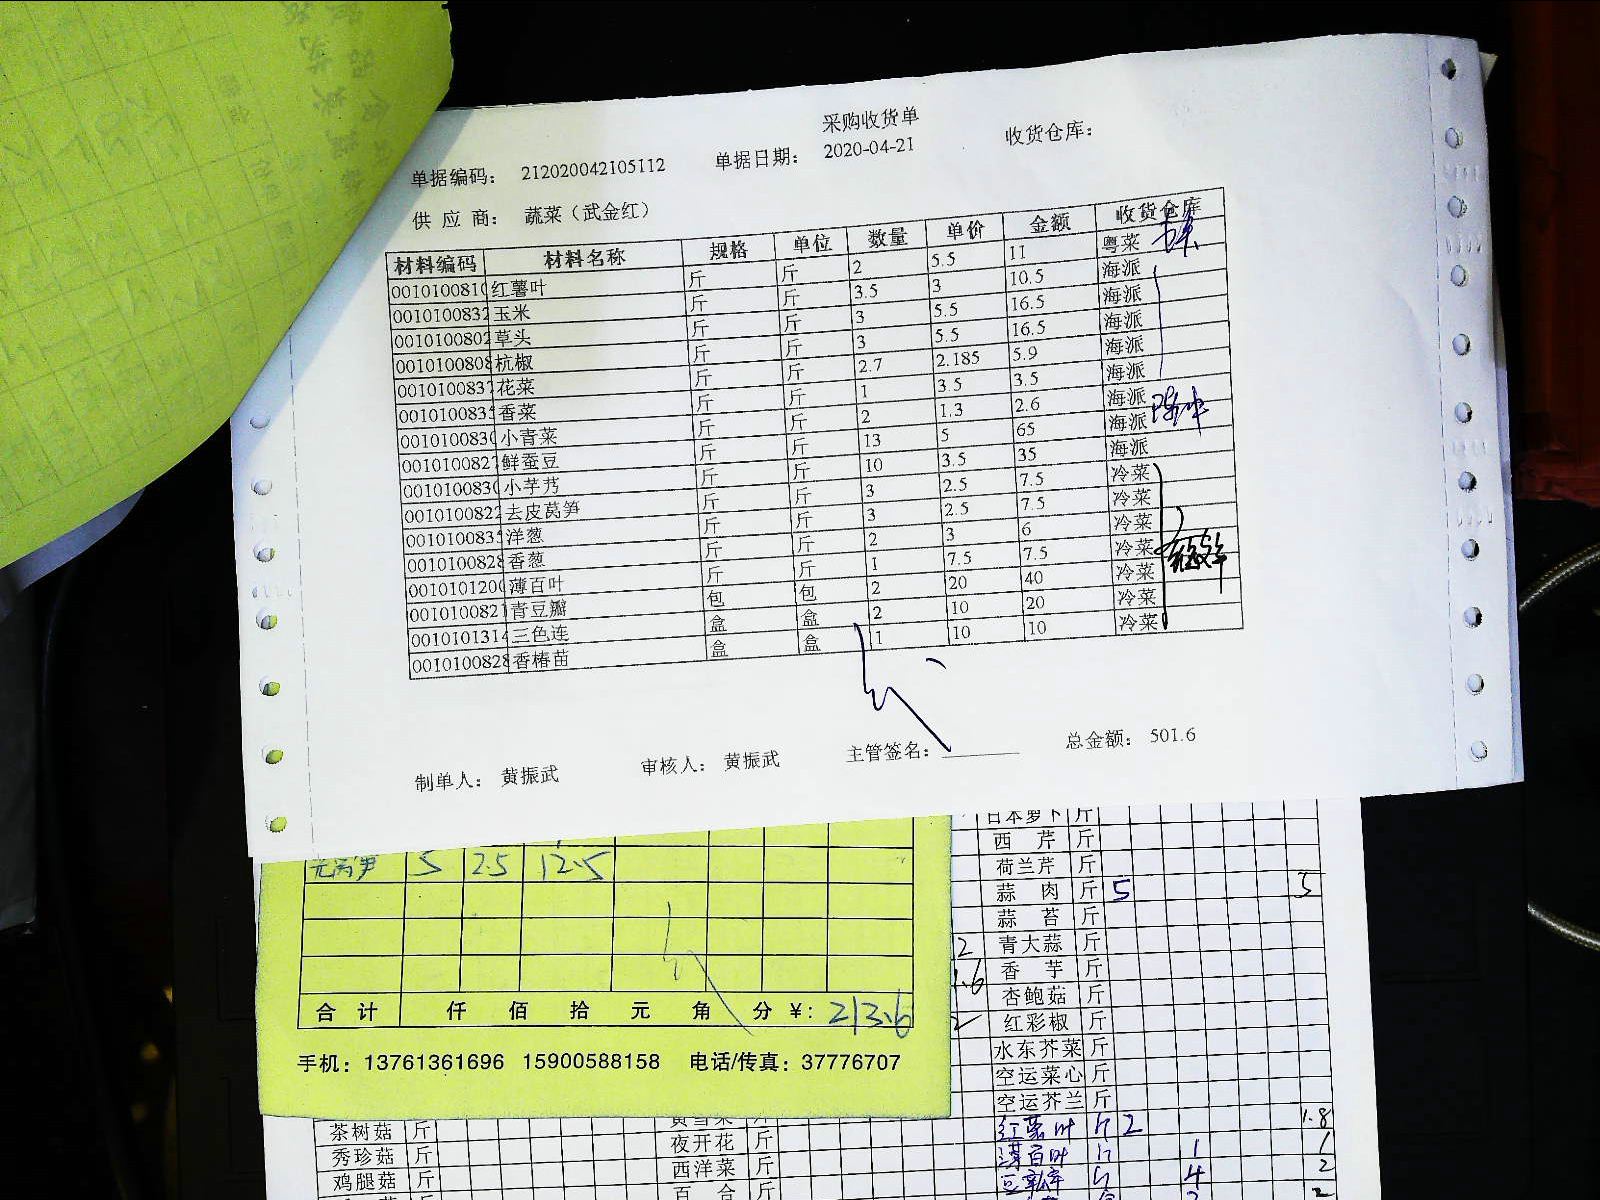 采购收货单
单据编码： 212020042105112 单据日期： 2020-04-21 收货仓库：
供 应 商： 蔬菜（武金红）
材料编码 材料名称 规格 单位 数量 单价 金额 收货仓库
001010081 红薯叶 斤 斤 2 5.5 11 粤菜
0010100832 玉米 斤 斤 3.5 3 10.5 海派
0010100802 草头 斤 斤 3 5.5 16.5 海派
0010100808 杭椒 斤 斤 3 5.5 16.5 海派
001010083 花菜 斤 斤 2.7 2.185 5.9 海派
001010083 香菜 斤 斤 1 3.5 3.5 海派
001010083 小青菜 斤 斤 2 1.3 2.6 海派
001010082 鲜蚕豆 斤 斤 13 5 65 海派
001010083 小芋艿 斤 斤 10 3.5 35 海派
001010082 去皮莴笋 斤 斤 3 2.5 7.5 冷菜
001010083 洋葱 斤 斤 3 2.5 7.5 冷菜
001010082 香葱 斤 斤 2 3 6 冷菜
001010120 薄百叶 斤 斤 1 7.5 7.5 冷菜
001010082 青豆瓣 包 包 2 20 40 冷菜
001010131 三色连 盒 盒 2 10 20 冷菜
001010082 香椿苗 盒 盒 1 10 10 冷菜
制单人： 黄振武 审核人： 黄振武 主管签名： 总金额： 501.6
5 2.5 12.5
合 计 仟 佰 拾 元 角 分 ¥: 213.6
手机：13761361696 15900588158 电话/传真：37776707
日本萝卜 斤
西 芹 斤
荷兰芹 斤
蒜 肉 斤 5 5
蒜 苔 斤
2 青大蒜 斤
1.6 香 芋 斤
杏鲍菇 斤
红彩椒 斤
水东芥菜 斤
空运菜心 斤
空运芥兰 斤
茶树菇 斤 红薯叶 斤 2 1.8
秀珍菇 斤 夜开花 斤 薄百叶 斤 1 1
鸡腿菇 斤 西洋菜 斤 4 2
百 合 斤